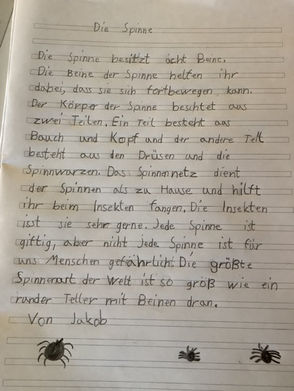 Die Spinne
Die Spinne besitzt acht Beine.
Die Beine der Spinne helfen ihr
dabei, dass sie sich fortbewegen kann.
Der Körper der Spinne beschtet aus
zwei Teilen. Ein Teil besteht aus
Bauch und Kopf und der andere Teil
besteht aus den Drüsen und die
Spinnwarzen. Das Spinnennetz dient
der Spinnen als zu Hause und hilft
ihr beim Insekten fangen. Die Insekten
isst sie sehr gerne. Jede Spinne ist
giftig, aber nicht Jede Spinne ist für
uns Menschen gefährlich. Die größte
Spinnenart der Welt ist so groß wie ein
runder Teller mit Beinen dran.
Von Jakob